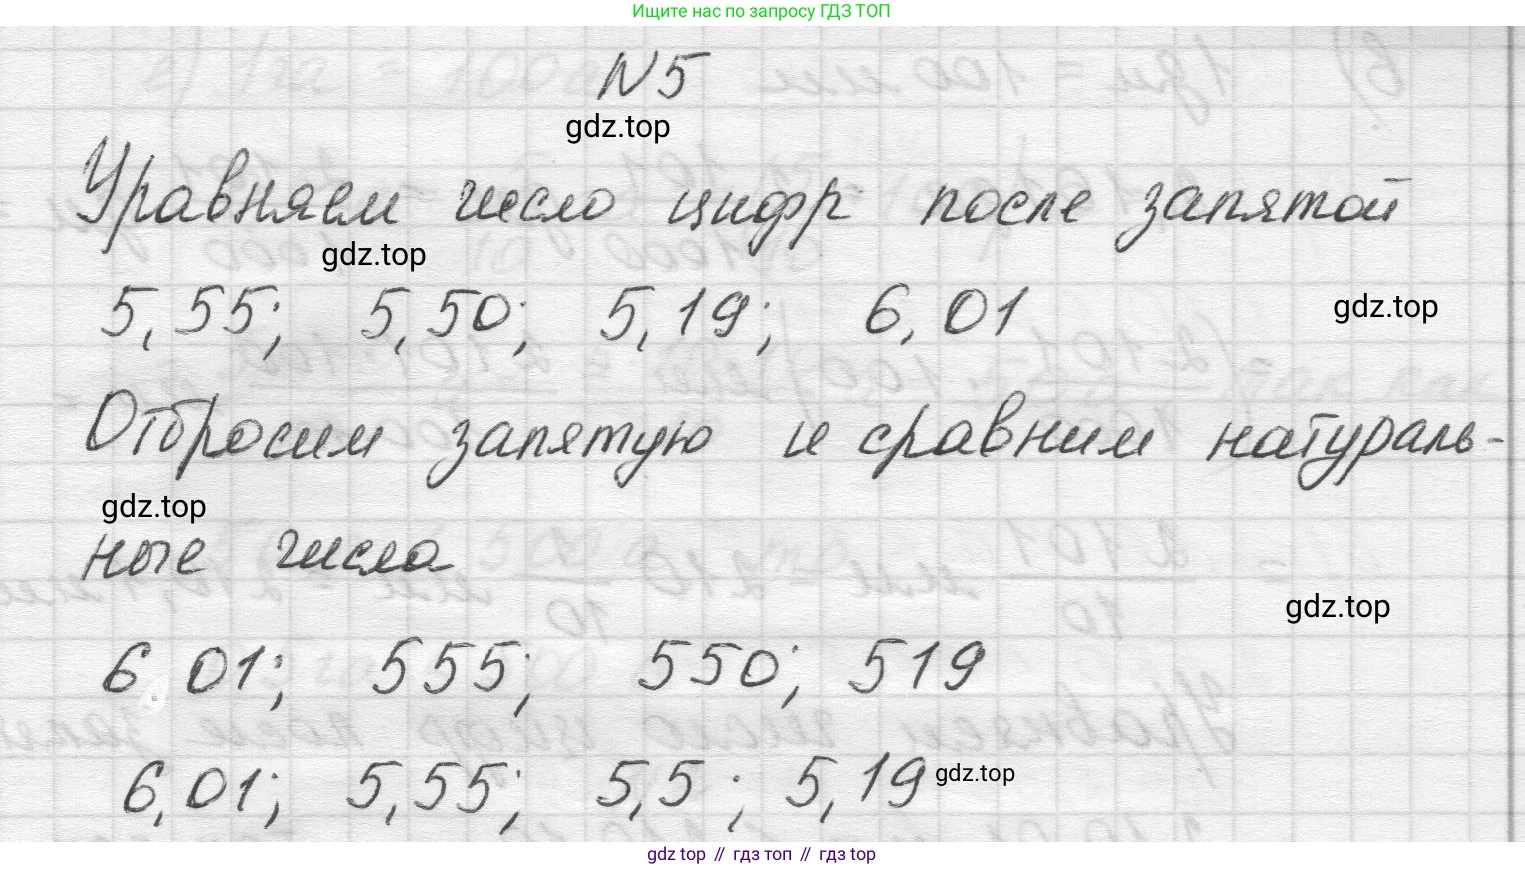 Ищите нас по запросу ГДЗ ТОП
N5
gdz.top
Уравняем число цифр после запятой
gdz.top
5,55; 5,50; 5,19; 6,01
gdz.top
Отбросим запятую и сравним натураль-
gdz.top
ные числа
gdz.top
6 01; 555; 550; 519
6,01; 5,55; 5,5; 5,19
gdz.top
gdz top // гдз топ // гдз top